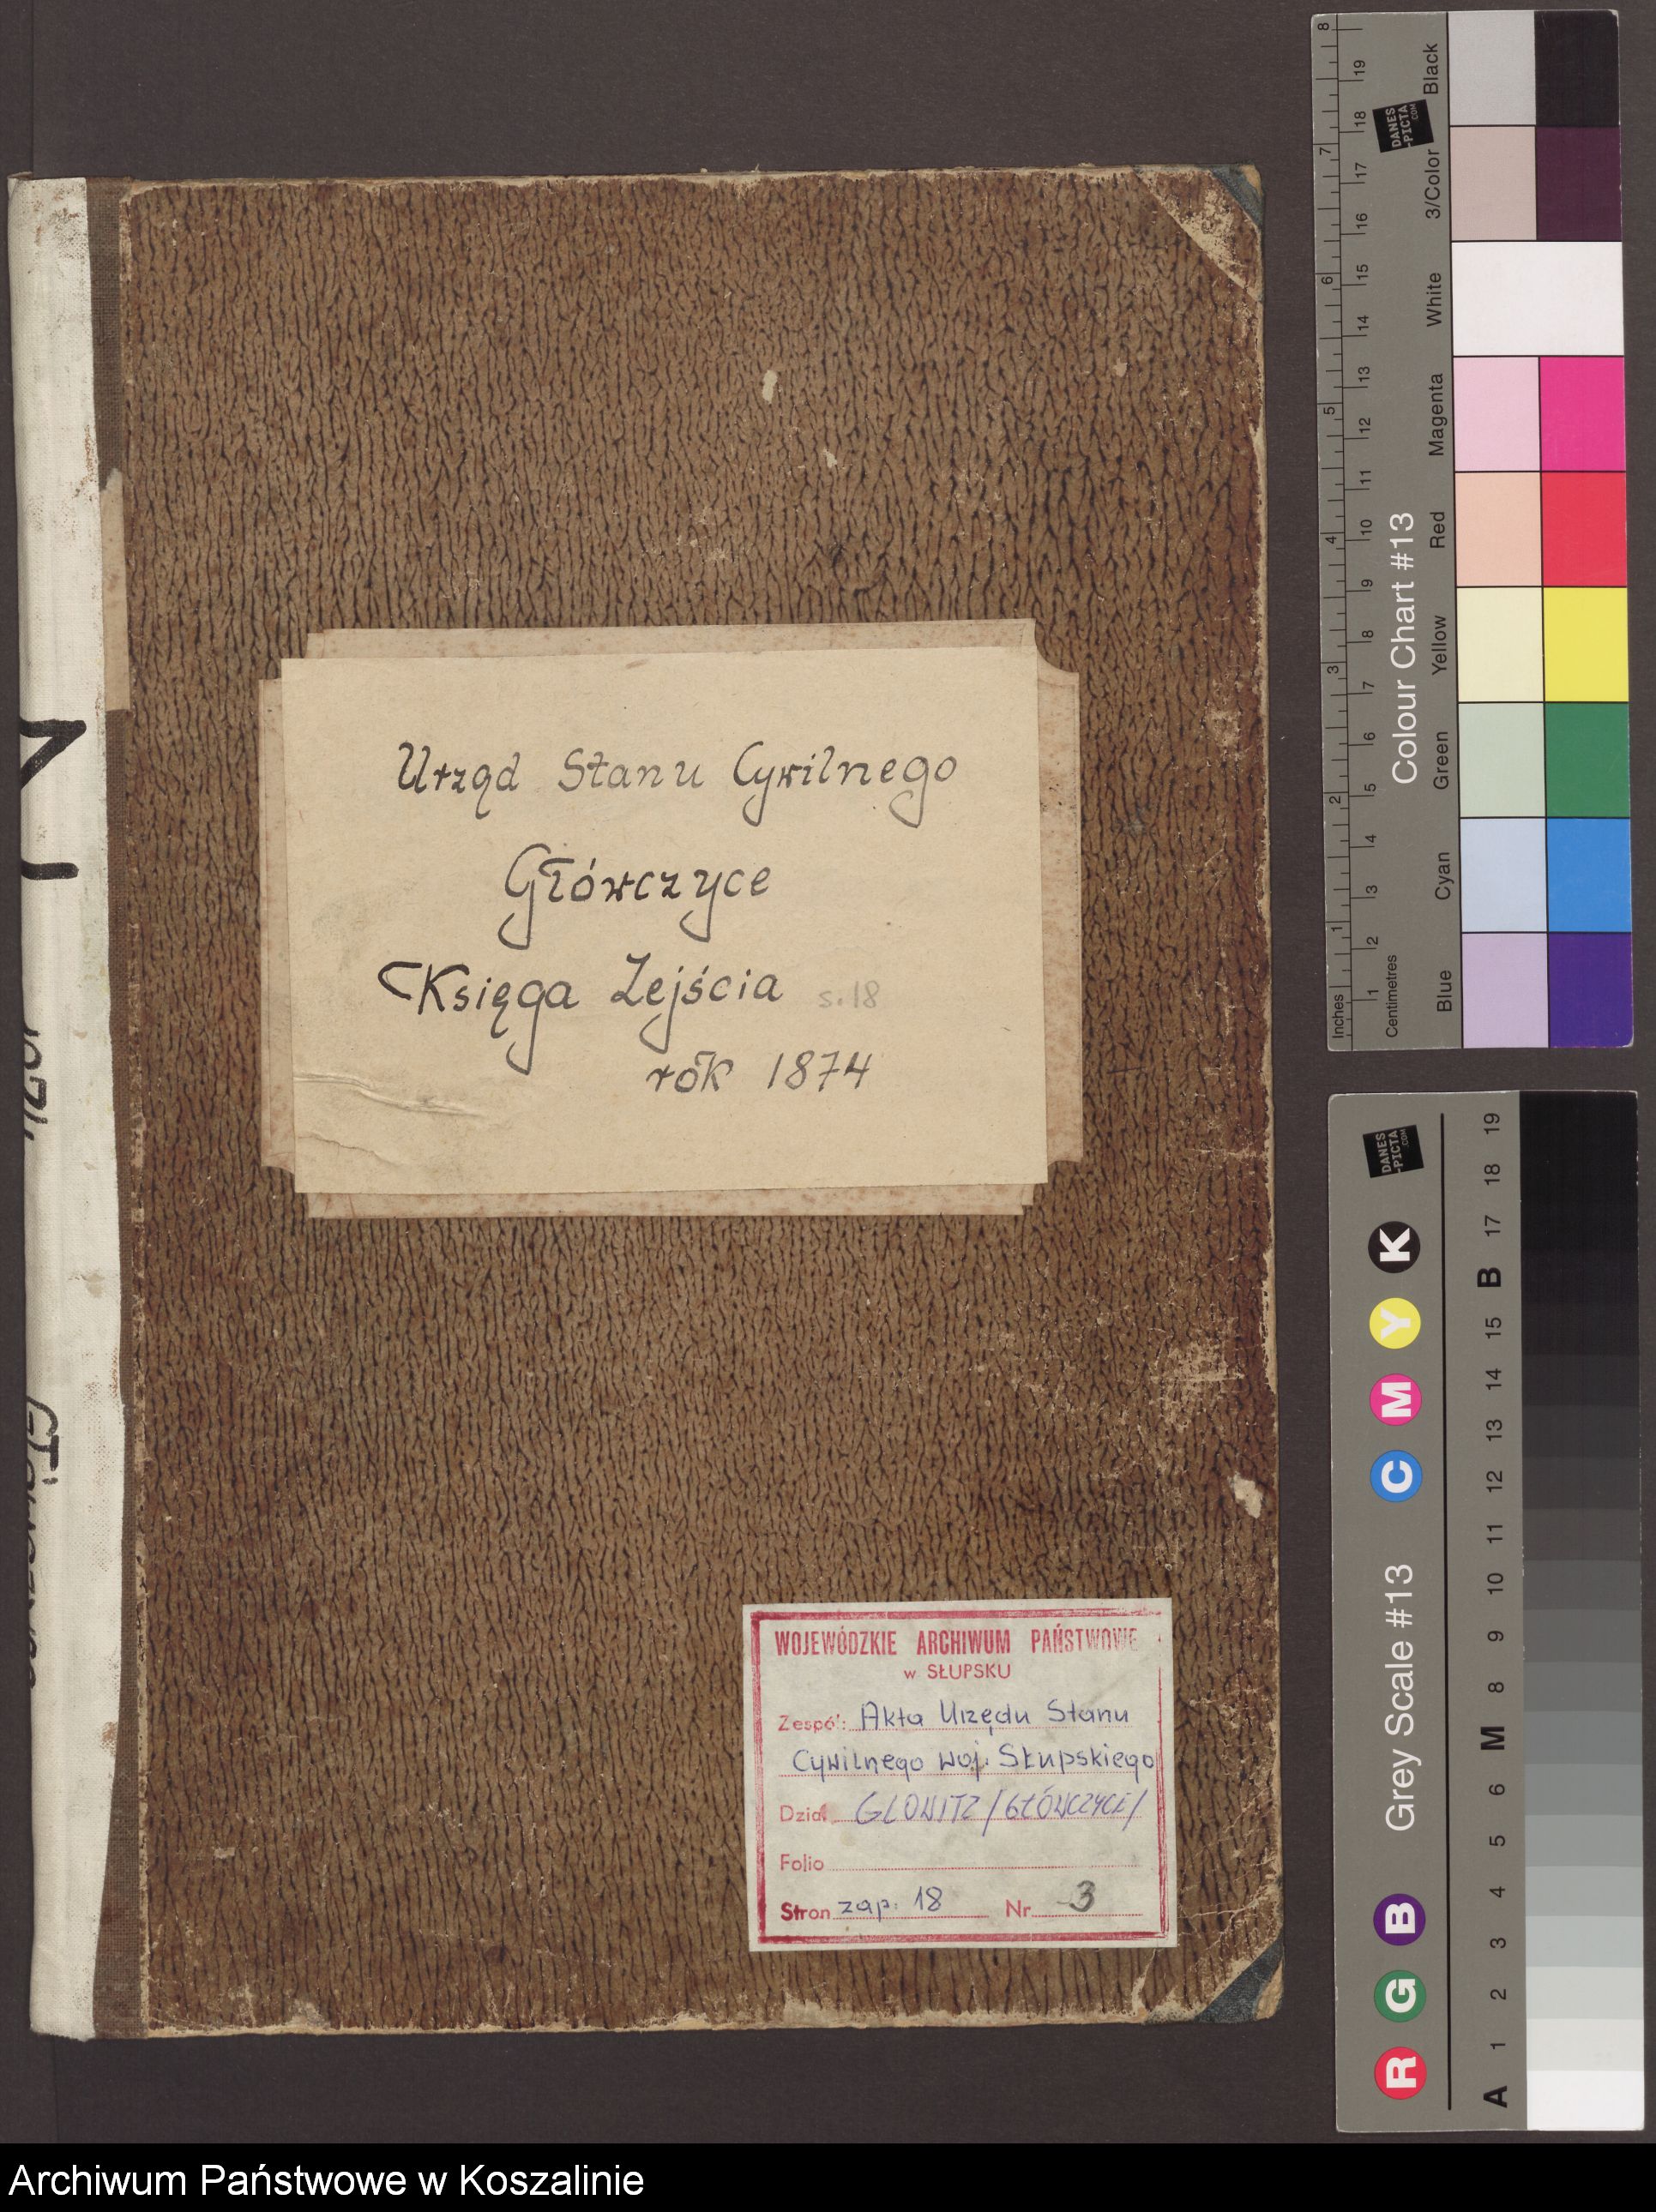 Urząd Stanu Cywilnego
Główczyce
Księga Zejścia s.18
rok 1874
WOJEWÓDZKIE ARCHIWUM PAŃSTWOWE
w SŁUPSKU
Zespół: Akta Urzędu Stanu
Cywilnego woj. Słupskiego
Dział GLOWITZ /GŁÓWCZYCE/
Folio
Stron zap. 18 Nr 3
Inches 1 2 3 4 5 6 7 8
Centimetres 1 2 3 4 5 6 7 8 9 10 11 12 13 14 15 16 17 18 19
Colour Chart #13
Blue Cyan Green Yellow Red Magenta White 3/Color Black
DANES
-PICTA
.COM
Grey Scale #13
R G B C M Y K
DANES
-PICTA
.COM
A 1 2 3 4 5 6 M 8 9 10 11 12 13 14 15 B 17 18 19
Archiwum Państwowe w Koszalinie